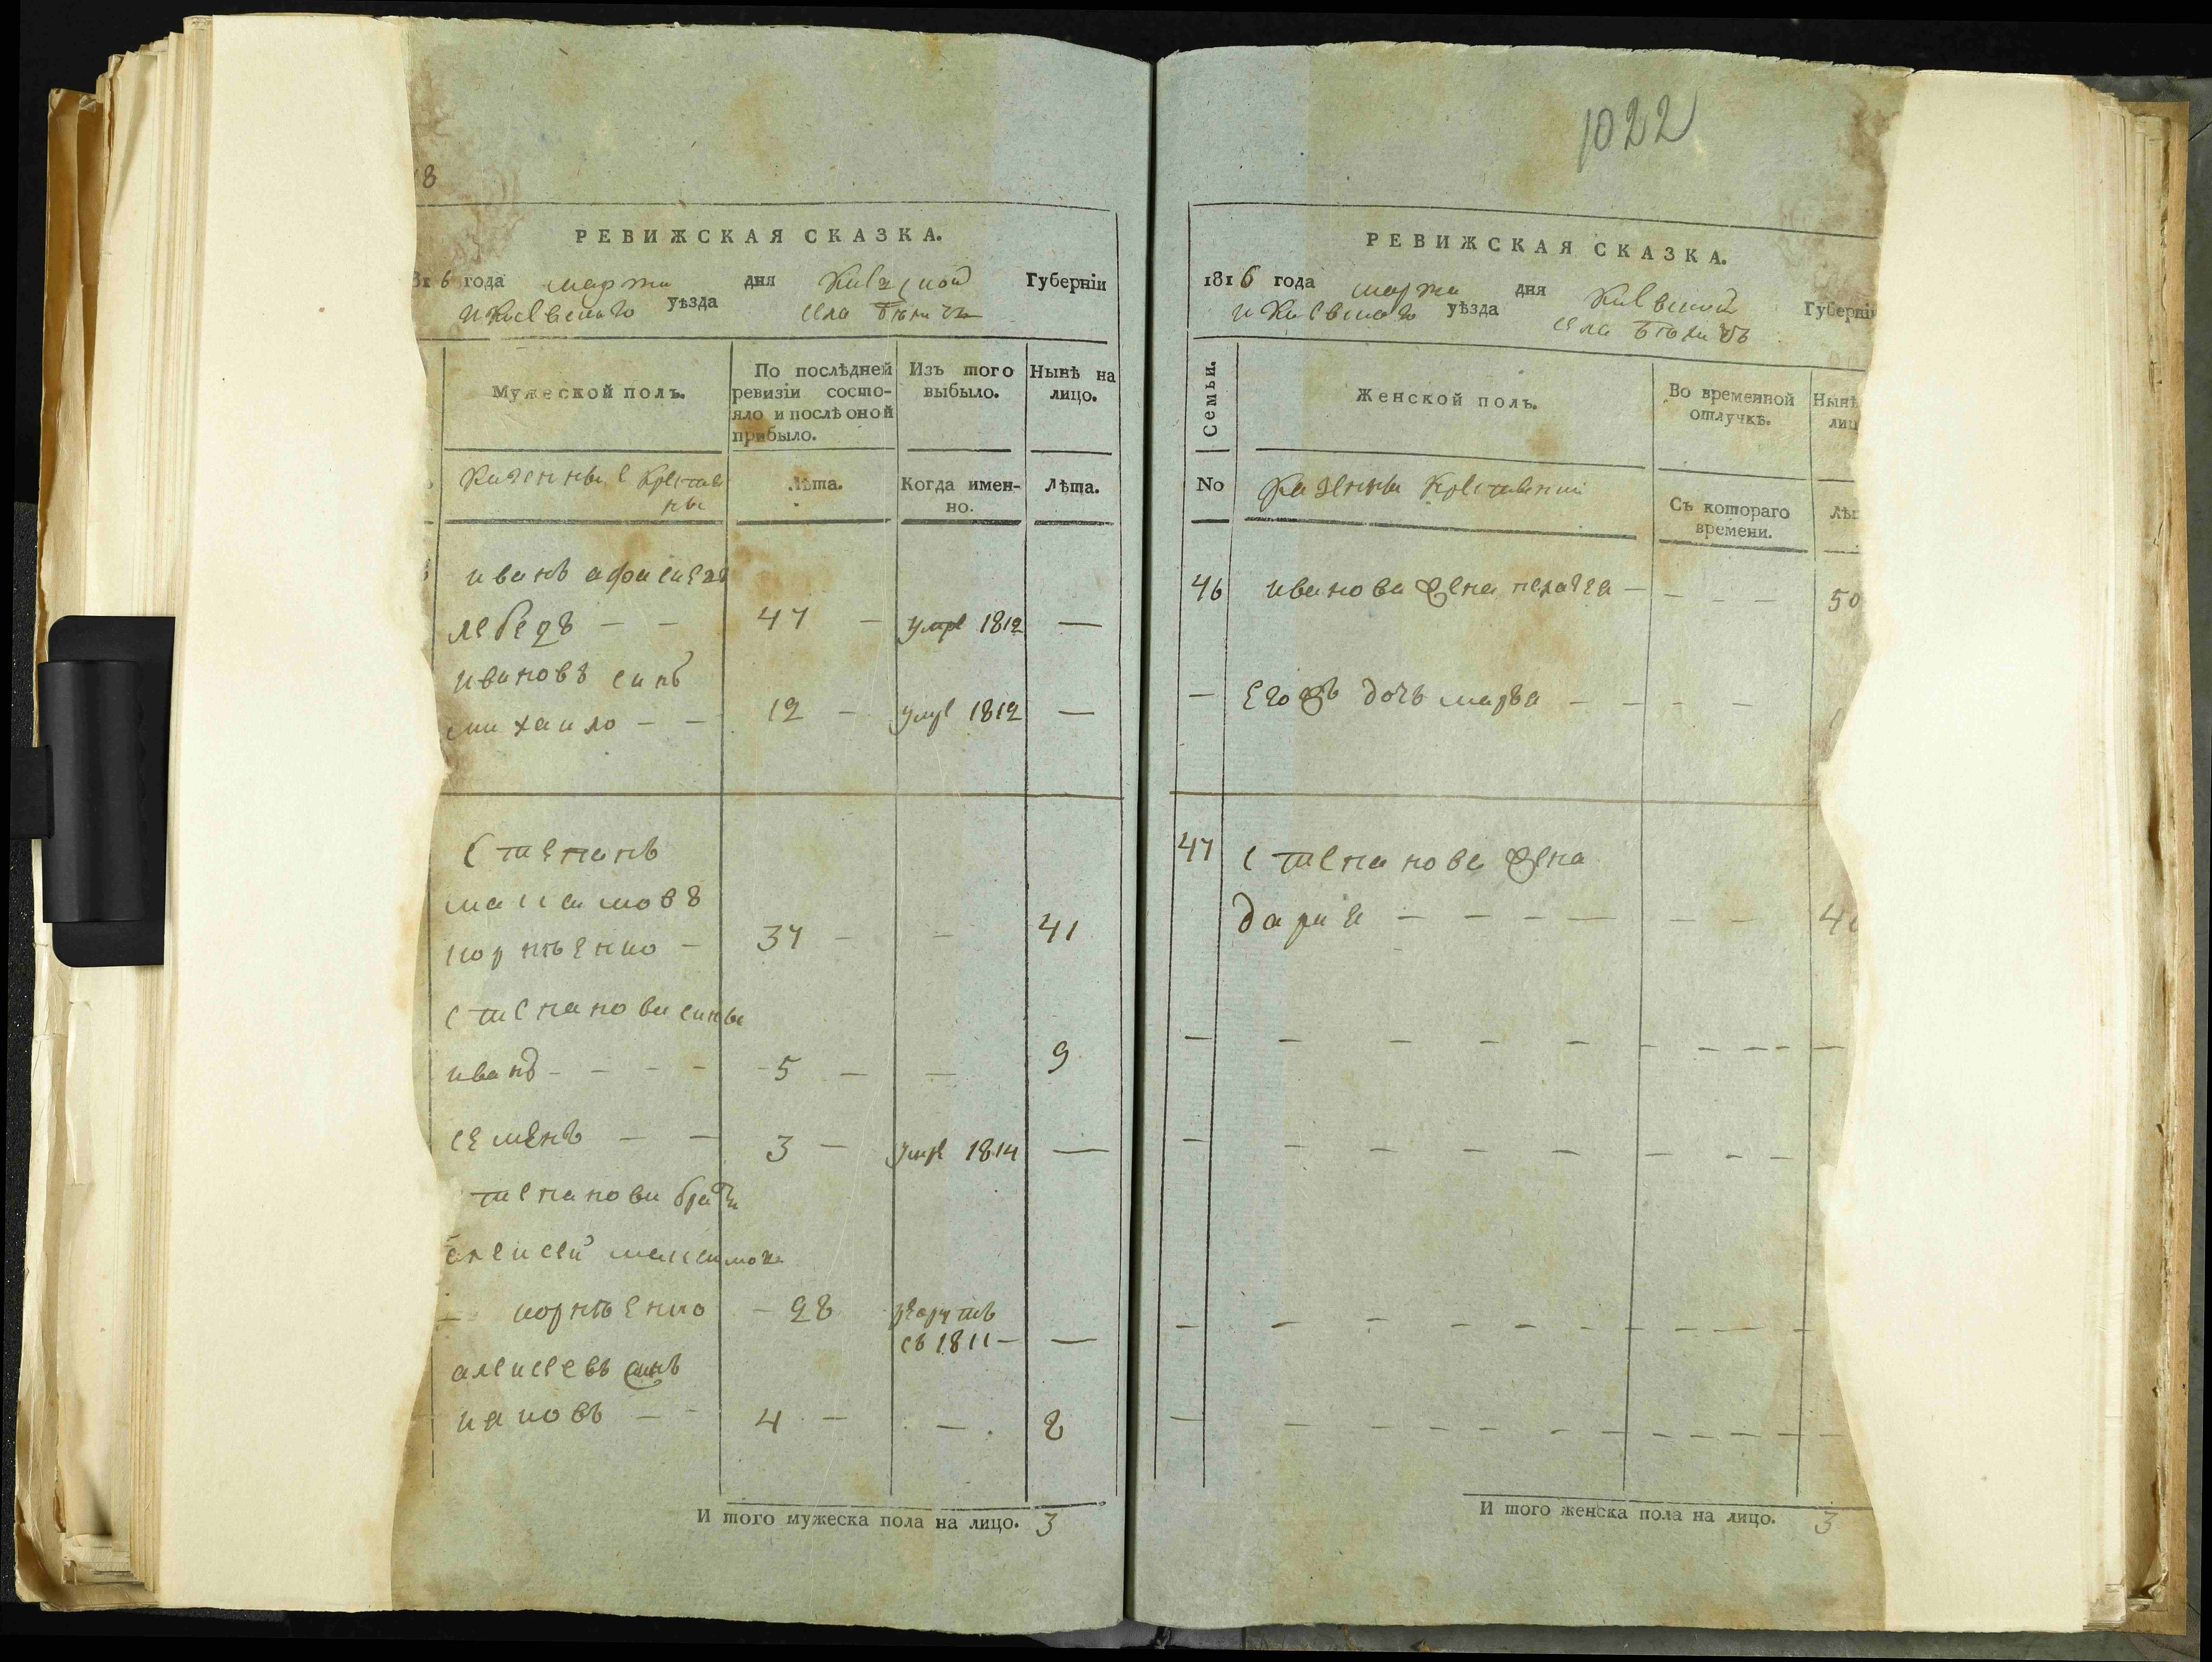 8
РЕВИЖСКАЯ СКАЗКА.
816 года марта дня Киевской Губерніи
и Киевскаго уѣзда села Бѣличъ
Мужеской полъ.
По послѣдней ревизіи состояло и послѣ оной прибыло.
Изъ того выбыло.
Нынѣ на лицо.
Казенные крестьяне
Лѣта.
Когда именно.
Лѣта.
иванъ
лебедъ — — 47 — умре 1812 —
ивановъ синъ
михаило — — 12 — умре 1812 —
степанъ
максимовъ
корнѣенко — 37 — — 41
степанови сины
иванъ - - - - 5 — — 9
семенъ — — 3 — умре 1814 —
степанови брати
алексей
корнѣенко - 28 рекрутъ
съ 1811 — —
алексеевъ синъ
яковъ — - 4 — — 8
И того мужеска пола на лицо. 3
1022
РЕВИЖСКАЯ СКАЗКА.
1816 года марта дня Киевской Губерні
и Киевскаго уѣзда села Бѣличъ
Семьи.
Женской полъ.
Во временной отлучкѣ.
Нынѣ лиц
No
Казенны крестьянки
Съ котораго времени.
Лѣт
46 иванова жена пелагея — — - — 50
— егожъ дочъ марѳа — — - —
47 степанова жена
дарія — — — — — — 4
И того женска пола на лицо. 3